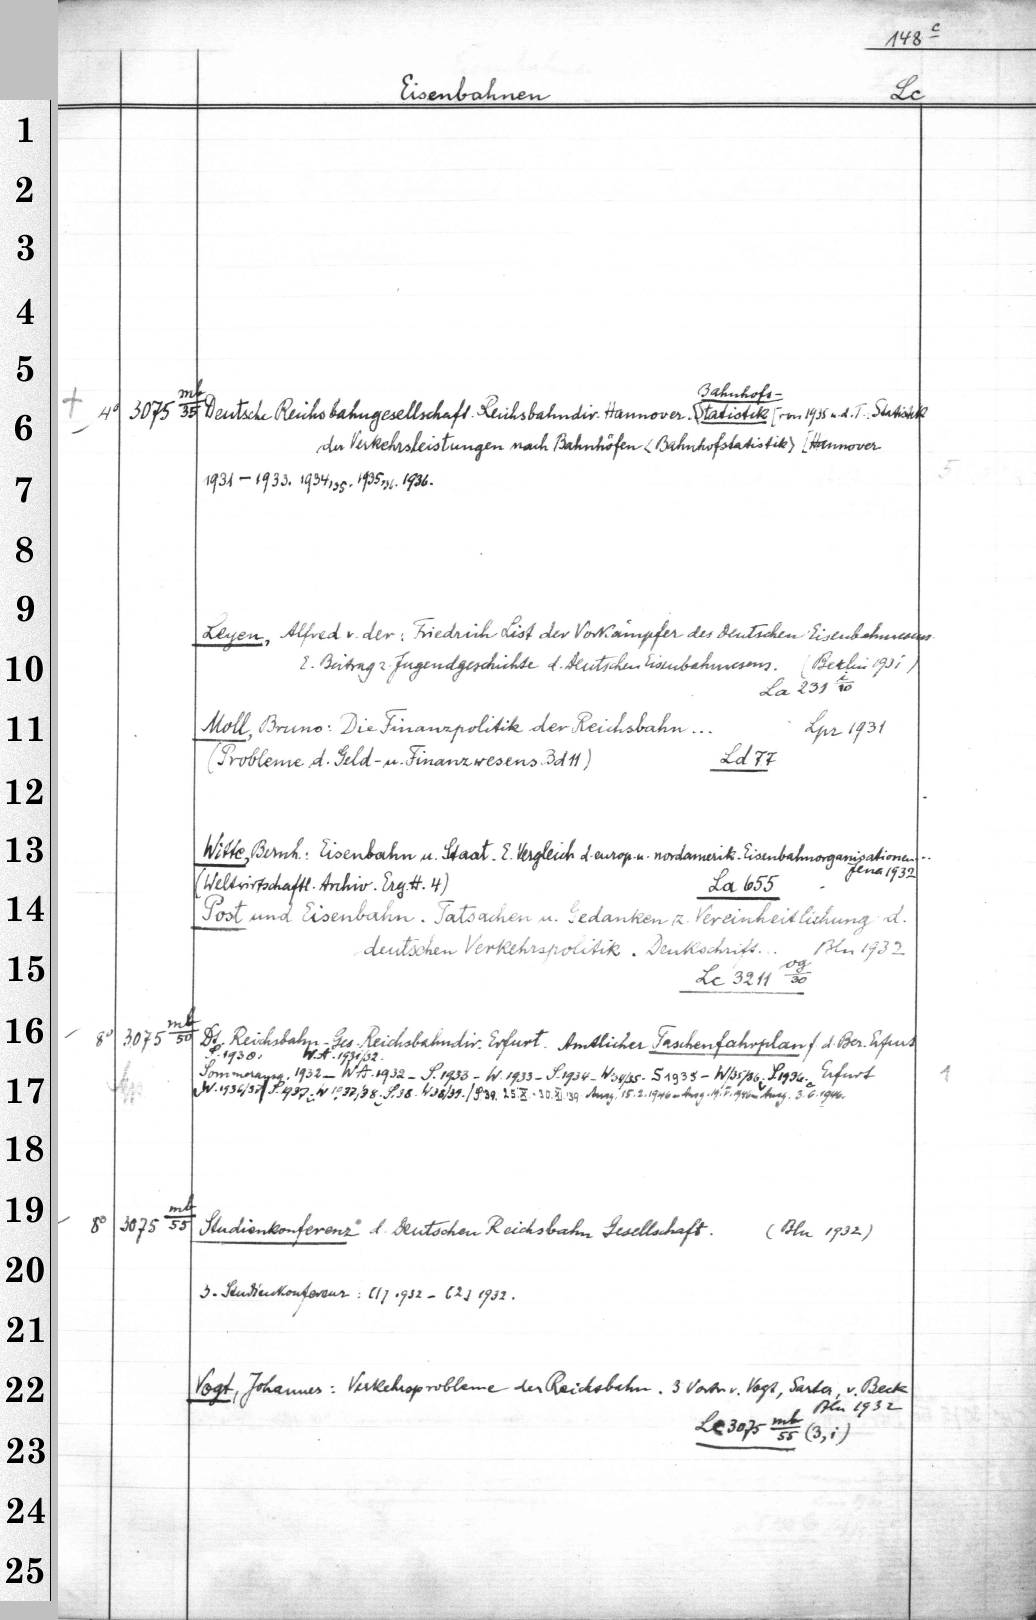 148 c
Eisenbahnen Lc
1
2
3
4
5
Bahnhofs-
6 + 4° 3075 mb/35 Deutsche Reichsbahngesellschaft. Reichsbahndir. Hannover. Statistik [von 1935 u. d. T.: Statistik
der Verkehrsleistungen nach Bahnhöfen <Bahnhofstatistik>] Hannover
7 1931 – 1933. 1934/35. 1935/36. 1936. 5
8
9
Leyen, Alfred v. der: Friedrich List der Vorkämpfer des deutschen Eisenbahnwesens
10 E. Beitrag z. Jugendgeschichte d. deutschen Eisenbahnwesens. (Berlin 1931)
La 231 i/10
11 Moll, Bruno: Die Finanzpolitik der Reichsbahn ... Lpz 1931
(Probleme d. Geld- u. Finanzwesens. Bd 11) Ld 77
12
13 Witte, Bernh.: Eisenbahn u. Staat. E. Vergleich d. europ. u. nordamerik. Eisenbahnorganisationen...
Jena 1932
(Weltwirtschaftl. Archiv. Erg. H. 4) La 655
14 Post und Eisenbahn. Tatsachen u. Gedanken z. Vereinheitlichung d.
deutschen Verkehrspolitik. Denkschrift... Bln 1932
15 Lc 3211 vg/30
16 8° 3075 mb/50 Dt. Reichsbahn-Ges. Reichsbahndir. Erfurt. Amtlicher Taschenfahrplan f. d. Bez. Erfurt
S. 1930. W.A. 1931/32.
17 Sommerausg. 1932 – WA. 1932 – S. 1933 – W. 1933 – S. 1934 – W. 34/35 – S 1935 – W/35/36. S. 1936. Erfurt 1
W. 1936/37. S. 1937. W 1937/38. S. 38. W. 38/39. S 39. Ausg. 15. 2. 1946 Ausg. Ausg. 3. 6. 1946.
18
19 8° 3075 mb/55 Studienkonferenz d. Deutschen Reichsbahn Gesellschaft. (Bln 1932)
20
3. Studienkonferenz: (1) 1932 – (2) 1932.
21
22 Vogt, Johannes: Verkehrsprobleme der Reichsbahn. 3 Vortr. v. Vogt, Sarter, v. Beck
Bln 1932
23 Lc 3075 mb/55 (3,1)
24
25